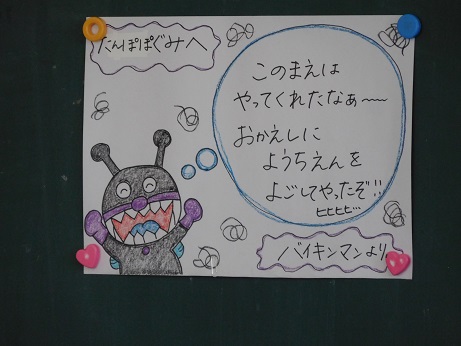 たんぽぽぐみへ
このまえは
やってくれたなぁ〜〜
おかえしに
ようちえんを
よごしてやったぞ!!
ヒヒヒヒ…
バイキンマンより